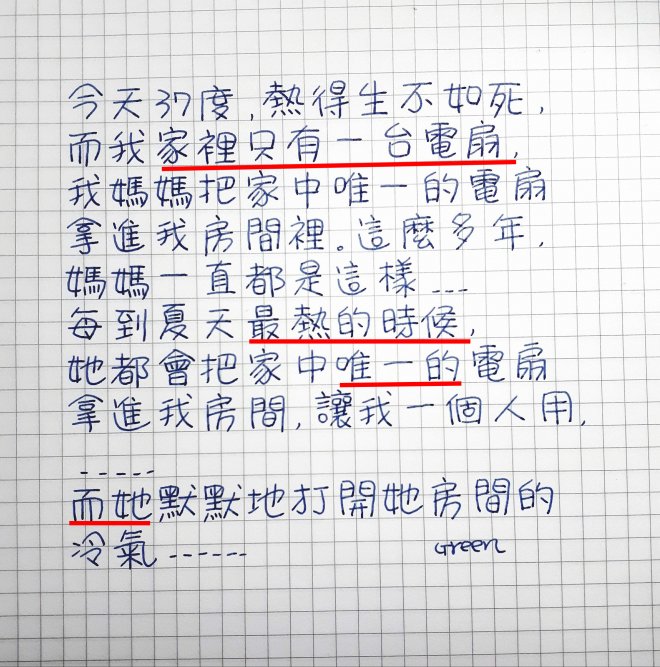 今天37度,熱得生不如死,
而我家裡只有一台電扇,
我媽媽把家中唯一的電扇
拿進我房間裡。這麼多年,
媽媽一直都是這樣---
每到夏天最熱的時候,
她都會把家中唯一的電扇
拿進我房間,讓我一個人用,
-----
而她默默地打開她房間的
冷氣------
Green